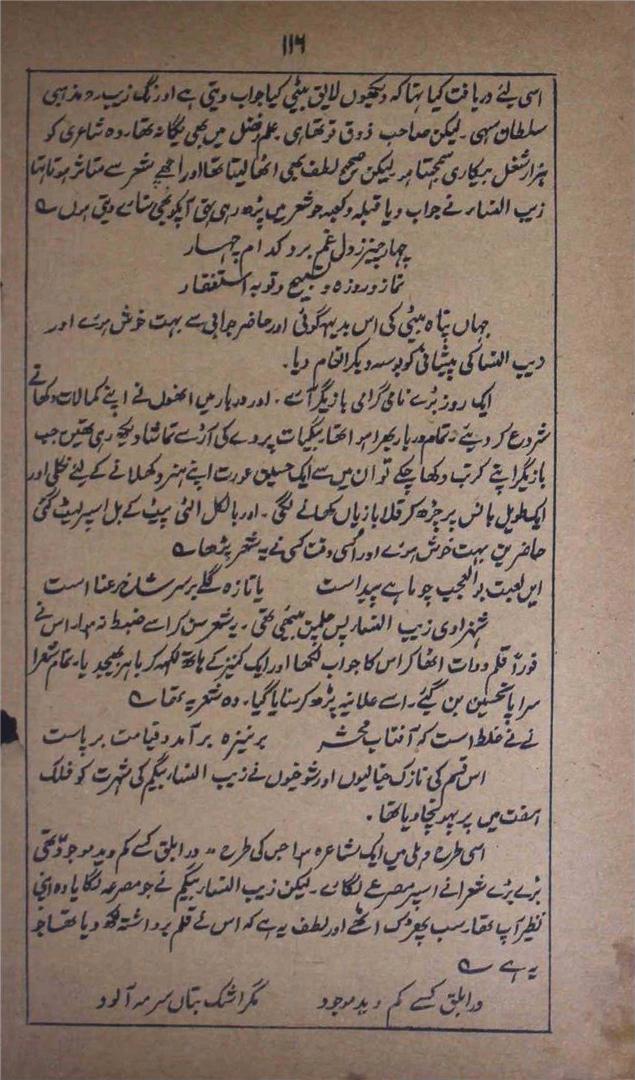 ۱۱۶
اسی لئے دریافت کیا تہا کہ دیکھیوں لایق بیٹی کیا جواب دیتی ہے اورنگ زیب۔ مذہبی
سلطان سہی ۔ لیکن صاحب ذوق تو تھا ہی ۔ علم و فضل میں بھی یگانہ تھا۔ وہ شاعری کو
ہزار شغل بیکاری سمجہتا ہو لیکن صحیح لطف بھی اٹھا لیتا تھا اور اچھے شعر سے متاثر ہوتا تہا
زیب النساء نے جواب دیا قبلہ و کعبہ جو شعر میں پڑھ رہی تھی آپکو بھی سنائے دیتی ہوں ؎
چہار چیز ز دل غم برد کدام چہار
نماز و روزہ و تسبیح و توبہ استغفار
جہاں پناہ بیٹی کی اس بدیہہ گوئی اور حاضر جوابی سے بہت خوش ہوئے اور
زیب النسا کی پیشانی کو بوسہ دیکر انعام دیا۔
ایک روز بڑے نامی گرامی بازیگر آئے ۔ اور دربار میں انھوں نے اپنے کمالات دکھانے
شروع کر دیئے ۔ تمام دربار بھرا ہوا تھا بیگمات پردے کی آڑ سے تماشا دیکھ رہی تھیں جب
بازیگر اپنے کرتب دکھا چکے تو ان میں سے ایک حسین عورت اپنے ہنر دکھلانے کے لئے نکلی اور
ایک طویل بانس پر چڑھ کر قلابازیاں کھانے لگی ۔ اور بالکل الٹی پیٹ کے بل اسپر لیٹ گئی
حاضرین بہت خوش ہوئے اور اُسی وقت کسی نے یہ شعر پڑھا ؎
ایں لعبت بوالعجب چو ماہے پیداست یا تازہ گلے بر سر شاخ رعنا است
شہزادی زیب النساء پس چلمن بیٹھی تھی ۔ یہ شعر سن کر اسے ضبط نہ ہوا۔ اس نے
فوراً قلم دوات اٹھا کر اس کا جواب لکھا اور ایک کنیز کے ہاتھ لکھہ کر باہر بھیجدیا۔ تمام شعرا
سراپا تحسین بن گئے۔ اسے علانیہ پڑھ کر سنایا گیا۔ وہ شعر یہ تھا ؎
نے نے غلط است کہ آفتاب محشر بر نیزہ برآمد و قیامت برپاست
اس قسم کی نازک خیالیوں اور شوخیوں نے زیب النساء بیگم کی شہرت کو فلک
ہفت میں پر پہونچا دیا تھا ۔
اسی طرح دہلی میں ایک مشاعرہ ہوا جس کی طرح "در ابلق کسے کم دید موجود" تھی
بڑے بڑے شعرا نے اسپر مصرعے لگائے ۔ لیکن زیب النساء بیگم نے جو مصرعہ لگایا وہ اپنی
نظیر آپ تھا۔ سب پھڑک اٹھے اور لطف یہ ہے کہ اس نے قلم برداشتہ لکھ دیا تھا جو
یہ ہے ؎
در ابلق کسے کم دید موجود مگر اشک بتاں سرمہ آلود